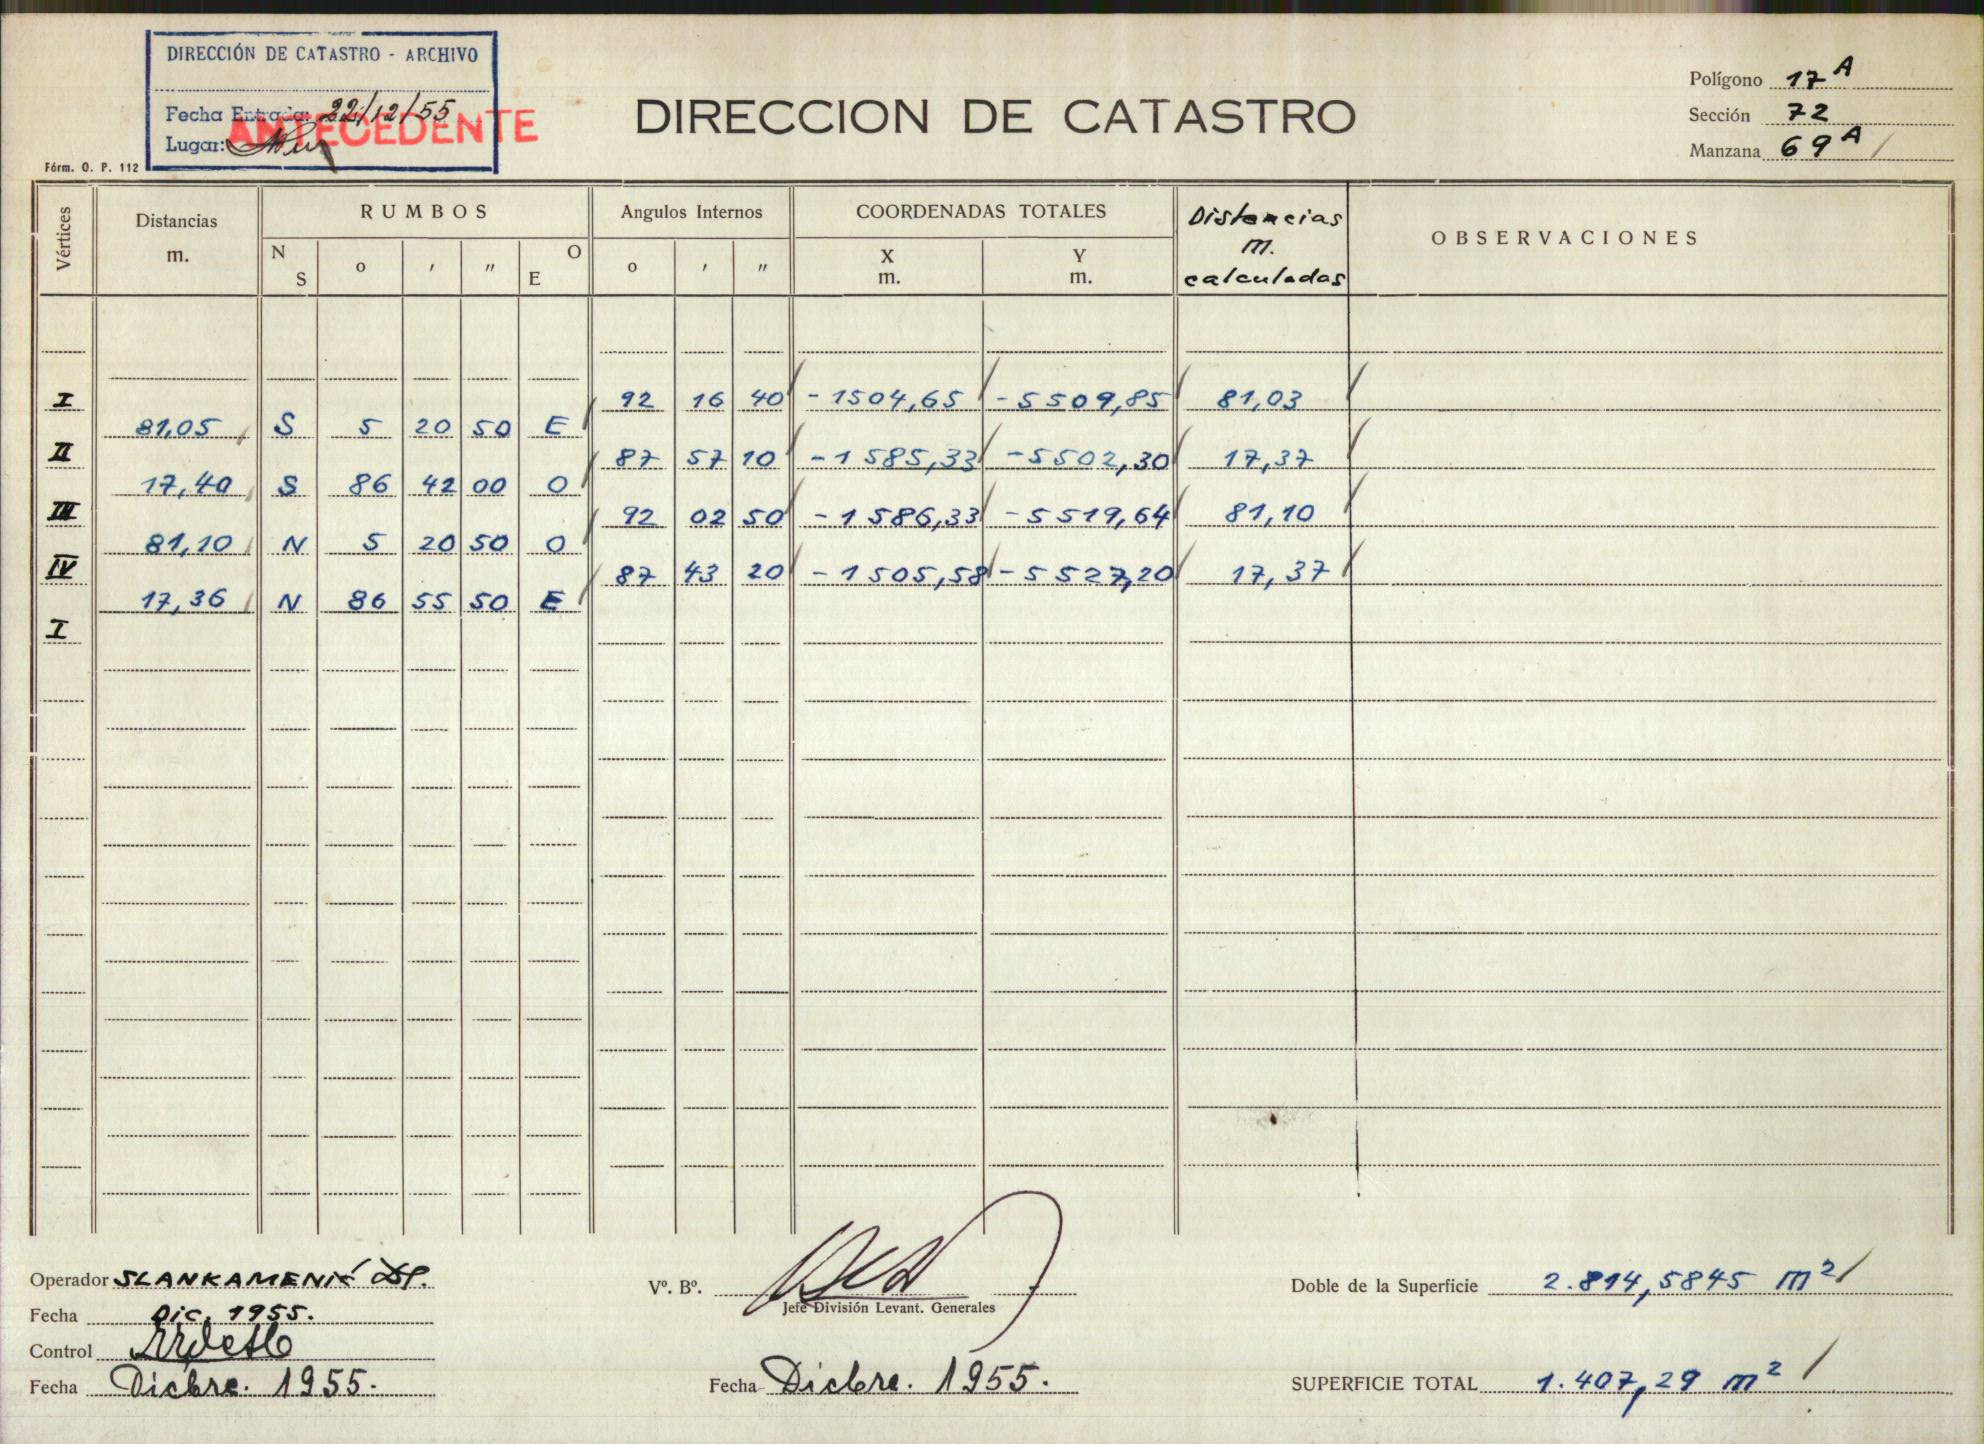 DIRECCIÓN DE CATASTRO - ARCHIVO
Fecha Entrada: 22/12/55
Lugar:
ANTECEDENTE
Fórm. O. P. 112
DIRECCION DE CATASTRO
Polígono 17 A
Sección 72
Manzana 69 A
Vértices Distancias m. RUMBOS N S o ′ ″ O E Angulos Internos o ′ ″ COORDENADAS TOTALES X m. Y m. Distancias m. calculadas OBSERVACIONES
I 92 16 40 -1504,65 -5509,85 81,03
81,05 S 5 20 50 E
II 87 57 10 -1585,33 -5502,30 17,37
17,40 S 86 42 00 O
III 92 02 50 -1586,33 -5519,64 81,10
81,10 N 5 20 50 O
IV 87 43 20 -1505,58 -5527,20 17,37
17,36 N 86 55 50 E
I
Operador SLANKAMENIĆ
Fecha Dic. 1955.
Control
Fecha Dicbre. 1955.
Vº. Bº.
Jefe División Levant. Generales
Fecha Dicbre. 1955.
Doble de la Superficie 2.814,5845 m²
SUPERFICIE TOTAL 1.407,29 m²